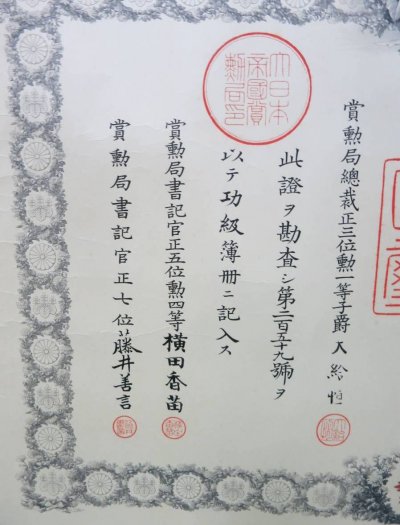 大日本
帝國賞
勲局印
賞勲局總裁正三位勲一等子爵大給恒
此證ヲ勘査シ第二百五十九號ヲ
以テ功級簿册ニ記入ス
賞勲局書記官正五位勲四等横田香苗
賞勲局書記官正七位藤井善言